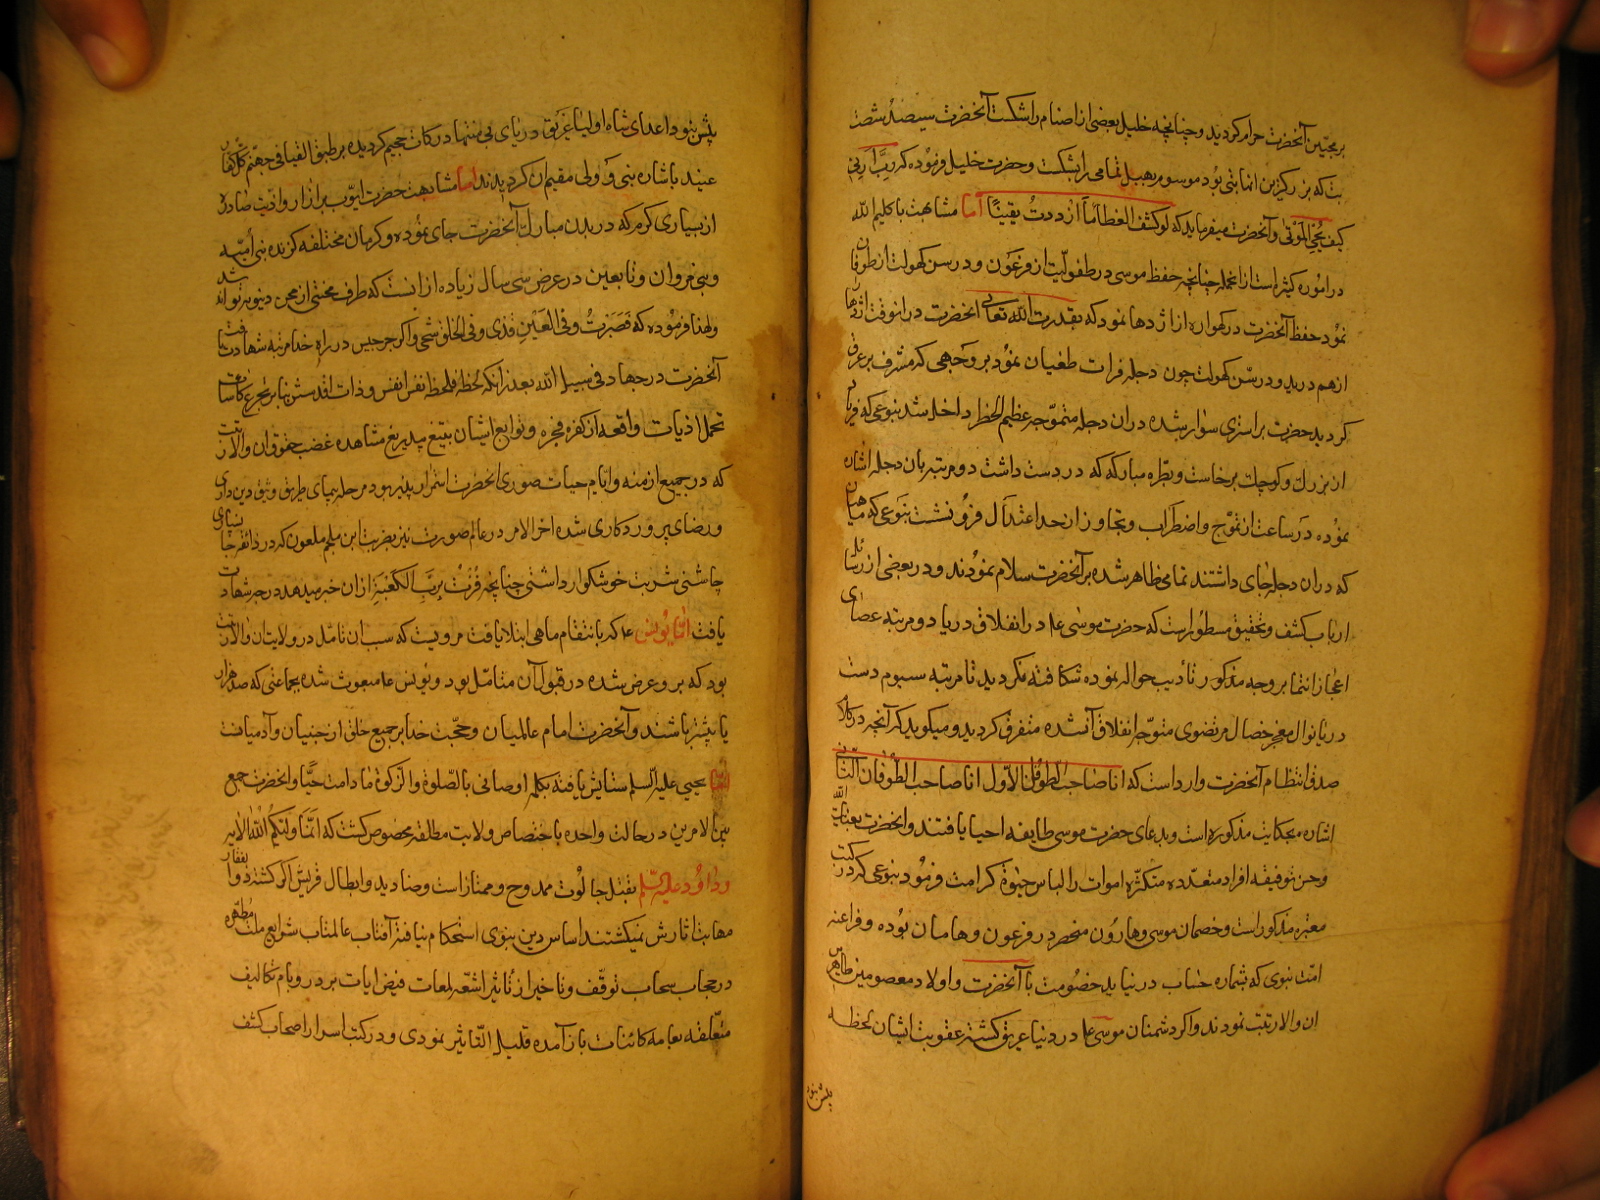 بر محبین آنحضرت حرام کردید و چنانچه خلیل بعضی از اصنام را شکست آنحضرت سیصد و شصت
بت که بزرکترین انها بتی بود موسوم بهبل تمامی را بشکست و حضرت خلیل فرموده که رب ارنی
کیف تحیی الموتی و آنحضرت میفرماید که لو کشف الغطا ما ازددت یقینا اما مشابهت با کلیم الله
در امور کثیره است از انجمله چنانچه حفظ موسی در طفولیت از فرعون و در سن کهولت از طوفان
نمود حفظ آنحضرت در کهواره از اژدها نمود که بقدرت الله تعالی آنحضرت در انوقت اژدها را
از هم درید و در سن کهولت چون دجله فرات طغیان نمود بر وجهی که مشرف بر غرق
کردید حضرت بر استری سوار شده در ان دجله متموجه عظیم الخطر داخل شد بنوعی که فریاد
از بزرک و کوچک برخاست و بطره مبارکه که در دست داشت دو مرتبه بان دجله اشاره
نموده در ساعت از تموج و اضطراب و تجاوز از حد اعتدال فرو نشست بنوعی که ماهیان
که در ان دجله جای داشتند تمامی ظاهر شده بر آنحضرت سلام نمودند و در بعضی از رسائل
ارباب کشف و تحقیق مسطور است که حضرت موسی عا در انفلاق دریا دو مرتبه عصای
اعجاز انتما بر وجه مذکور تأدیب حواله نموده شکافته نکردید تا مرتبه سیوم دست
دریا نوال معجز خصال مرتضوی متوجه انفلاق آن شده متفرق کردید و میکوید که آنچه در کلام
صدق انتظام آنحضرت وارد است که انا صاحب الطوفان الاول انا صاحب الطوفان الثانی
اشاره بحکایت مذکوره است و بدعای حضرت موسی طایفه احیا یافتند و آنحضرت بعنایت الله
و حسن توفیقه افراد متعدده متکثره اموات را لباس حیوة کرامت فرمود بنوعی که در کتب
معتبره مذکور است و خصمان موسی و هارون منحصر در فرعون و هامان بوده و فراعنه
امت نبوی که بشماره حساب در نیاید خصومت با آنحضرت و اولاد معصومین طاهرین
ان والا رتبت نمودند و اکر دشمنان موسی عا در دنیا غریق کشته عقوبت ایشان لحظه
بیش نبود
بیش نبود اعدای شاه اولیا غریق دریای بی منتها درکات جحیم کردیده بر طبق القیا فی جهنم کل کفار
عنید باشاره نبی و ولی مقیم ان کردیدند اما مشابهت حضرت ایوب بر ازار و اذیت صادره
از بسیاری کرم که در بدن مبارک آنحضرت جای نموده و کرمان مختلفه کزنده بنی امیه
و بنی مروان و تابعین در عرض سی سال زیاده از انست که طرف محنتی از محن دنیویه تواند شد
و لهذا فرموده که فصبرت و فی العین قذی و فی الحلق شجی و اکر جرجیس در راه خدا مرتبه شهادت یافت
آنحضرت در جهاد فی سبیل الله بعد از آنکه لحظه فلحظه نفس انفس و ذات اقدسش بنابر تجرع کاسات
تحمل اذیات واقعه از کفره فجره و توابع ایشان بتیغ بیدریغ مشاهده غضب حقوق ان والا رتبت
که در جمیع ازمنه و ایام حیات صوری آنحضرت استمرار پذیر بود مرحله پیمای طریق وثیق دین داری
و رضای پروردکاری شده اخر الامر در عالم صورت نیز بضربت ابن ملجم ملعون که در ذائقه جان
چاشنی شربت خوشکوار داشتی چنانچه فزت برب الکعبه از ان خبر میدهد درجه شهادت
یافت اما یونس عا که بانتقام ماهی ابتلا یافت مرویست که سبب ان تأمل در ولایت ان والا رتبت
بود که بر و عرض شده در قبول آن متأمل بود و یونس عا مبعوث شده بجماعتی که صد هزار
یا بیشتر باشند و آنحضرت امام عالمیان و حجت خدا بر جمیع خلق از جنیان و آدمیانست
اما یحیی علیه السلم ستایش یافته بکلمه اوصانی بالصلوة و الزکوة ما دامت حیا و آنحضرت جمع
بین الامرین در حالت واحده باختصاص ولایت مطلقه مخصوص کشت که انما ولیکم الله الایه
و داود علیه السلم بقتل جالوت ممدوح و ممتاز است و صنادید و ابطال قریش اکر کشته ذو الفقار
مهابت آثارش نمیکشتند اساس دین نبوی استحکام نیافته آفتاب عالمتاب شرایع ملت مطهره
در حجاب سحاب توقف و تاخیر از تأثیر اشعه لمعات فیض ایات بر در و بام تکالیف
متعلقه بعامه کائنات باز آمده قلیل التأثیر نمودی و در کتب اسرار اصحاب کشف